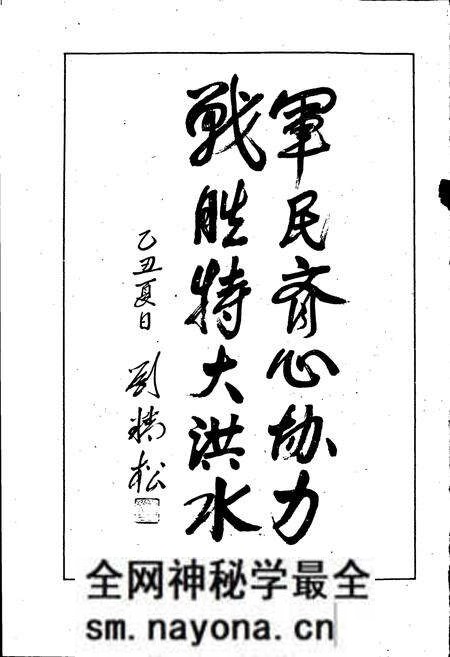 軍民齐心协力
戰胜特大洪水
乙丑夏日
劉精松
全网神秘学最全
sm.nayona.cn